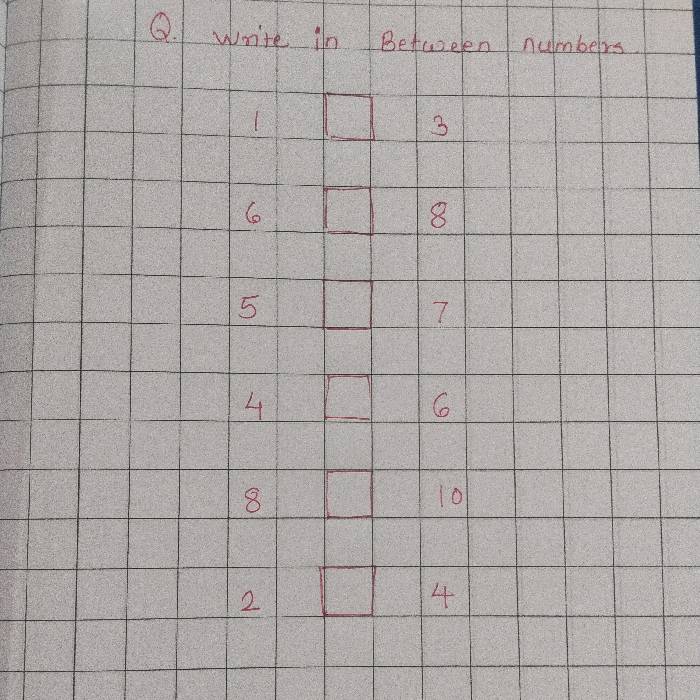 Q. Write in Between numbers.
1 3
6 8
5 7
4 6
8 10
2 4